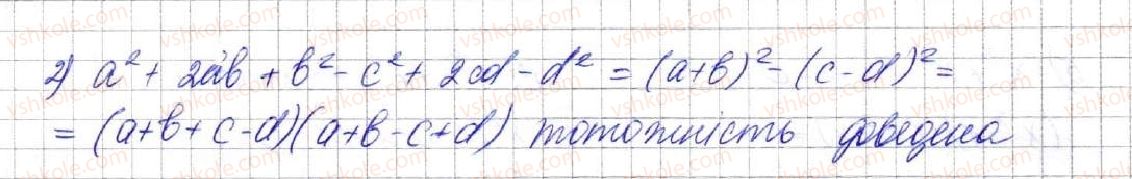 2) a² + 2ab + b² - c² + 2cd - d² = (a+b)² - (c-d)² =
= (a+b+c-d)(a+b-c+d) тотожність доведена